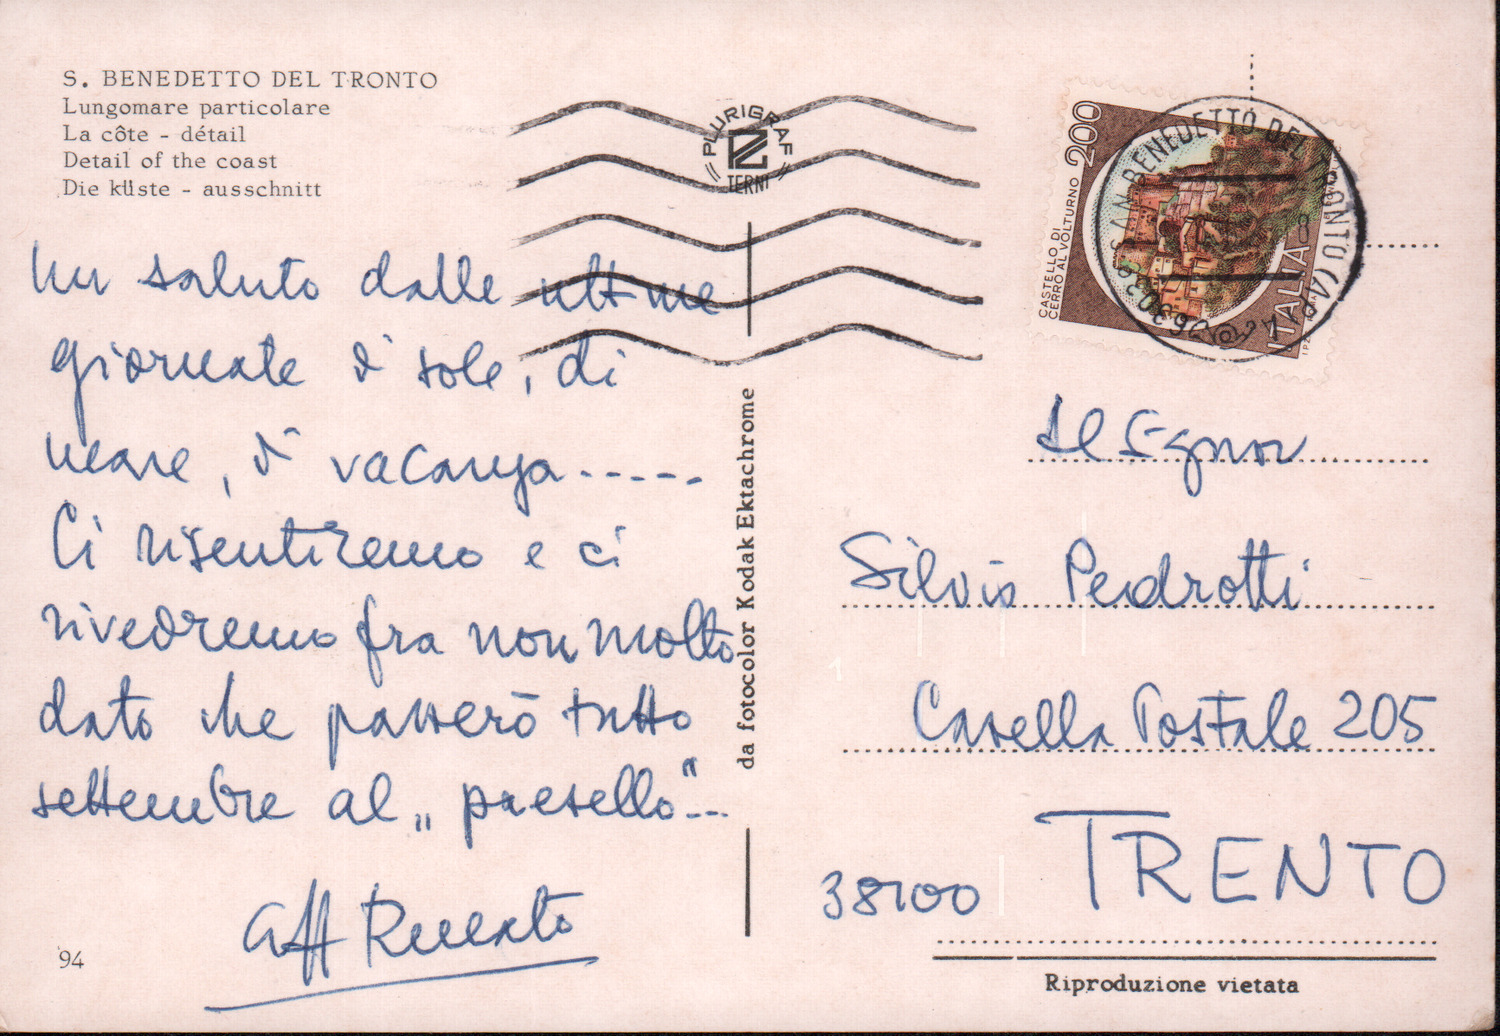 S. BENEDETTO DEL TRONTO
Lungomare particolare
La côte - détail
Detail of the coast
Die küste - ausschnitt
PLURIGRAF
TERNI
200
CASTELLO DI
CERRO AL VOLTURNO
ITALIA
SAN BENEDETTO DEL TRONTO (AP)
Un saluto dalle ultime
giornate di sole, di
mare, di vacanza-----
Ci risentiremo e ci
rivedremo fra non molto
dato che passerò tutto
settembre al „paesello"---
Aff Renato
94
da fotocolor Kodak Ektachrome
Al Signor
Silvio Pedrotti
Casella Postale 205
38100 TRENTO
Riproduzione vietata